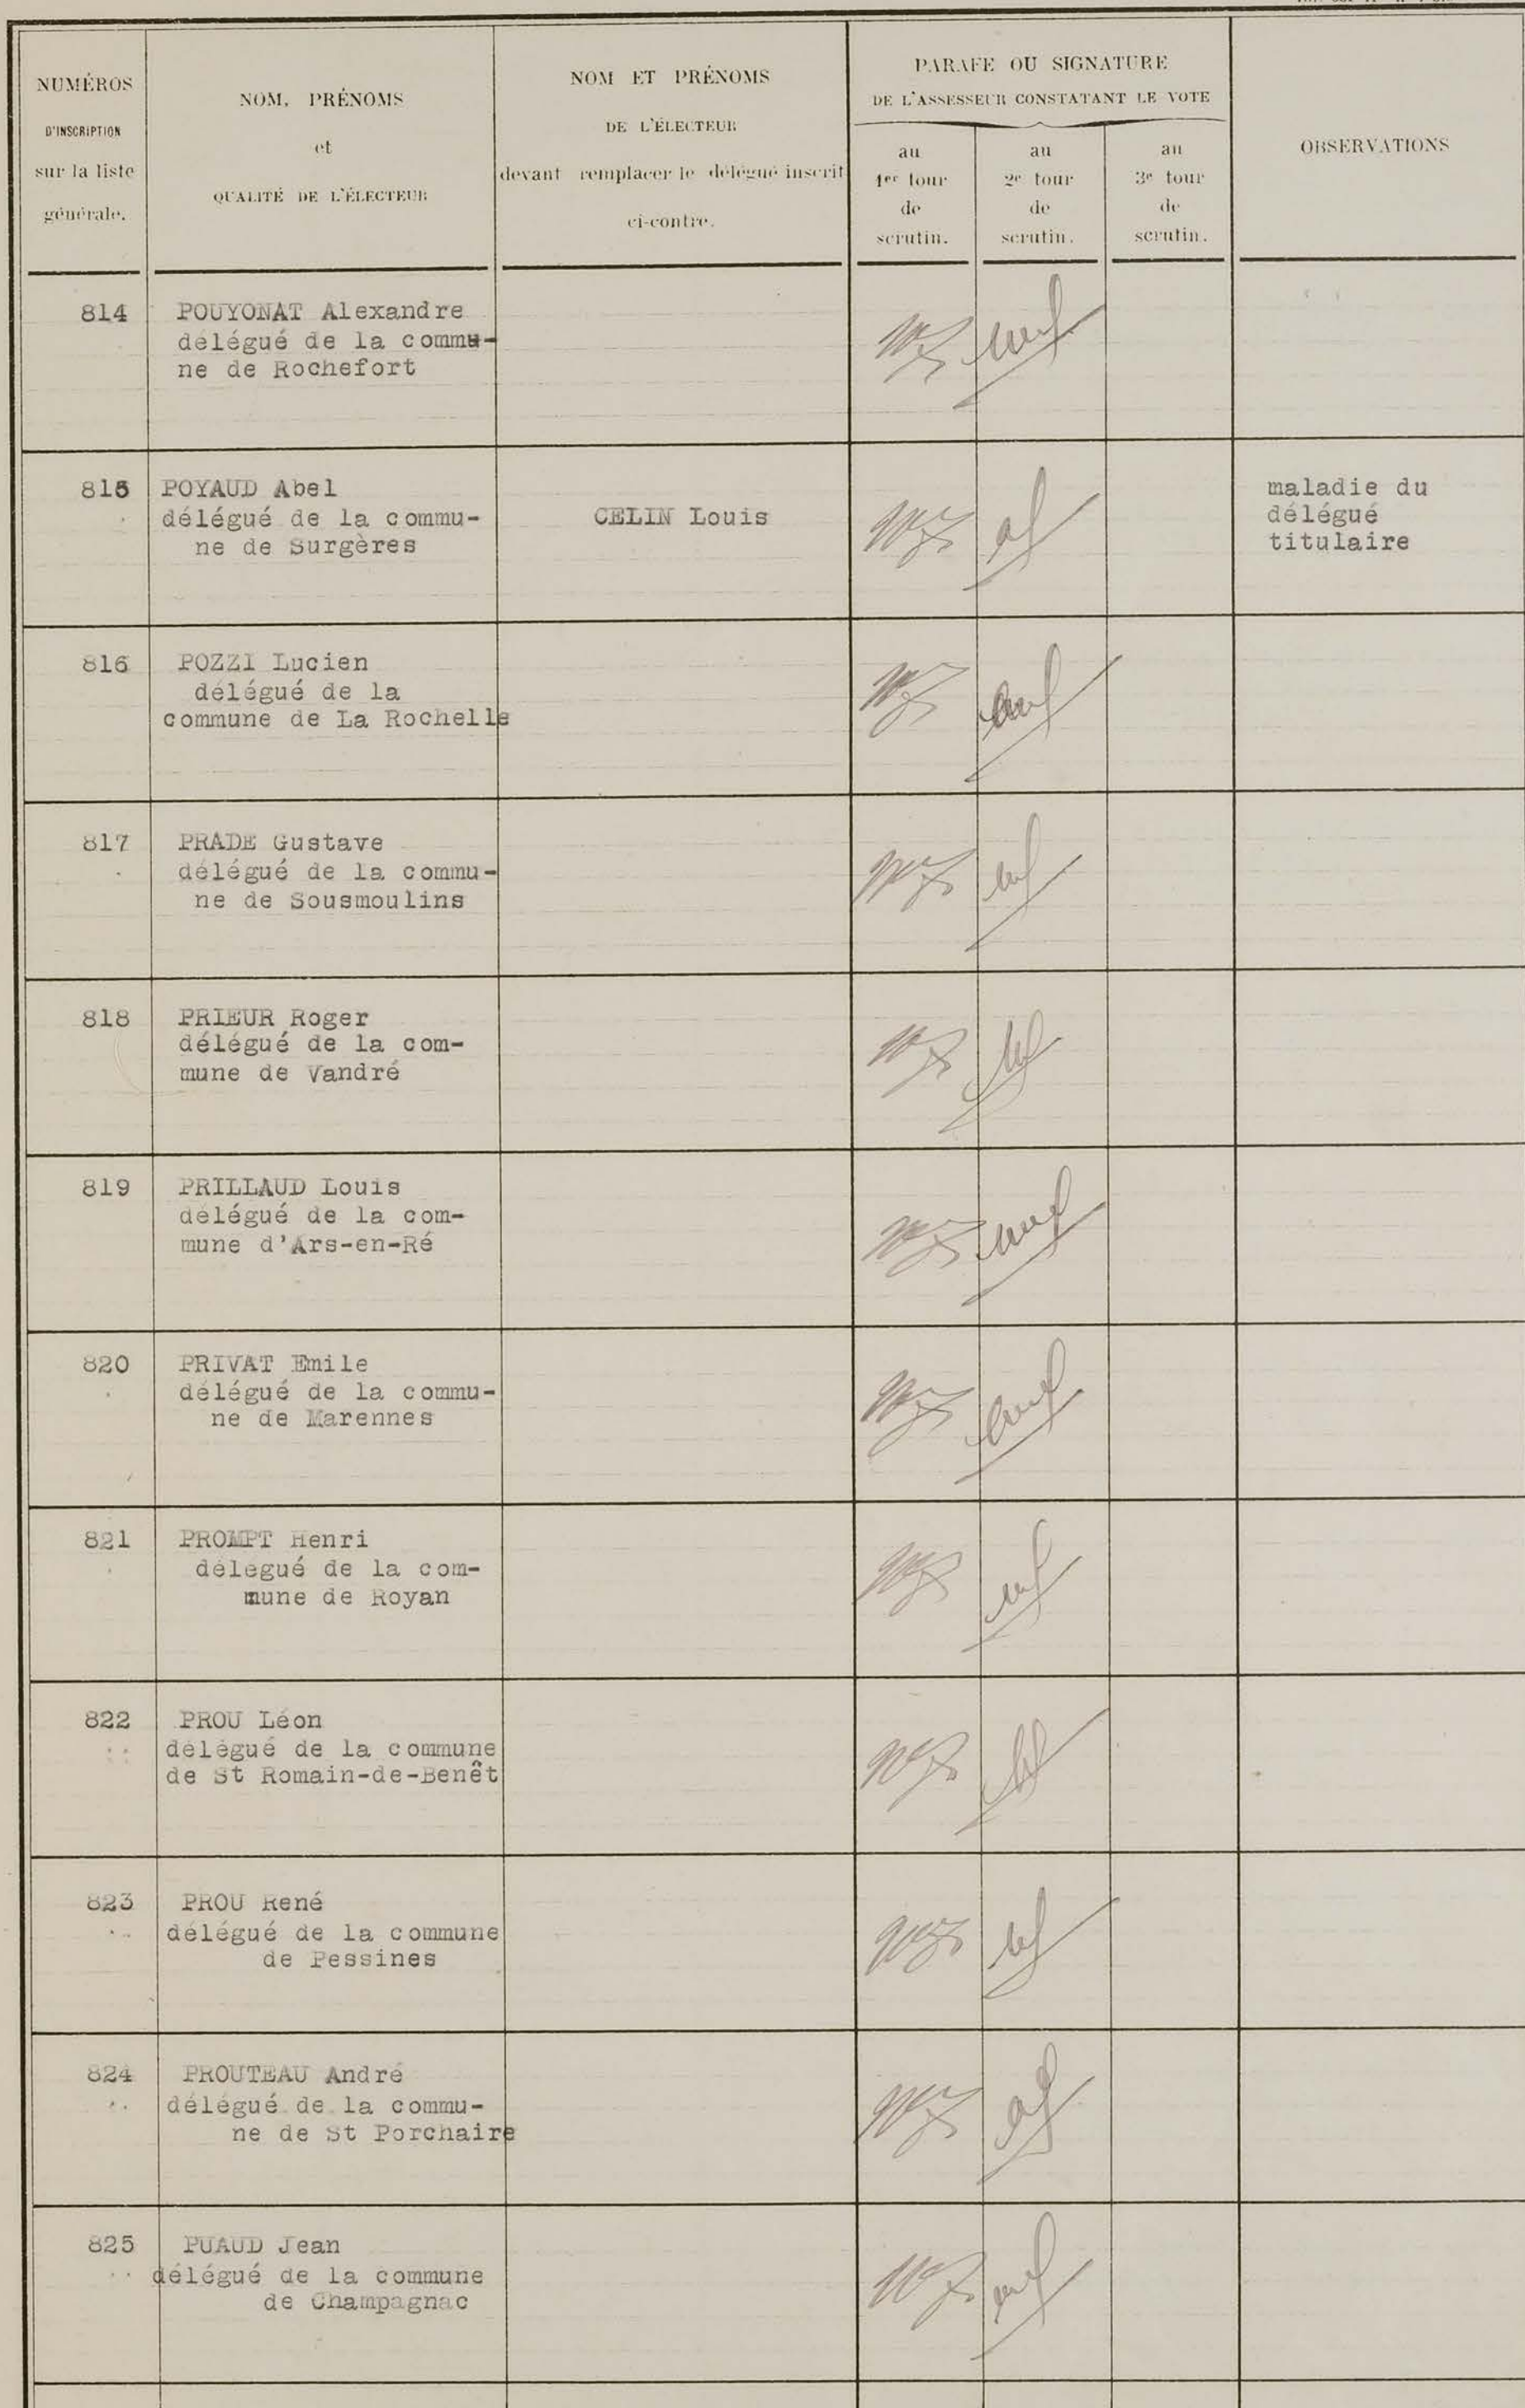 NUMÉROS
D'INSCRIPTION
sur la liste
générale.
NOM, PRÉNOMS
et
QUALITÉ DE L'ÉLECTEUR
NOM ET PRÉNOMS
DE L'ÉLECTEUR
devant remplacer le délégué inscrit
ci-contre.
PARAFE OU SIGNATURE
DE L'ASSESSEUR CONSTATANT LE VOTE
au
1er tour
de
scrutin.
au
2e tour
de
scrutin.
au
3e tour
de
scrutin.
OBSERVATIONS
814
POUYONAT Alexandre
délégué de la commu-
ne de Rochefort
815
POYAUD Abel
délégué de la commu-
ne de Surgères
CELIN Louis
maladie du
délégué
titulaire
816
POZZI Lucien
délégué de la
commune de La Rochelle
817
PRADE Gustave
délégué de la commu-
ne de Sousmoulins
818
PRIEUR Roger
délégué de la com-
mune de Vandré
819
PRILLAUD Louis
délégué de la com-
mune d'Ars-en-Ré
820
PRIVAT Emile
délégué de la commu-
ne de Marennes
821
PROMPT Henri
délegué de la com-
mune de Royan
822
PROU Léon
délégué de la commune
de St Romain-de-Benêt
823
PROU René
délégué de la commune
de Pessines
824
PROUTEAU André
délégué de la commu-
ne de St Porchaire
825
PUAUD Jean
délégué de la commune
de Champagnac